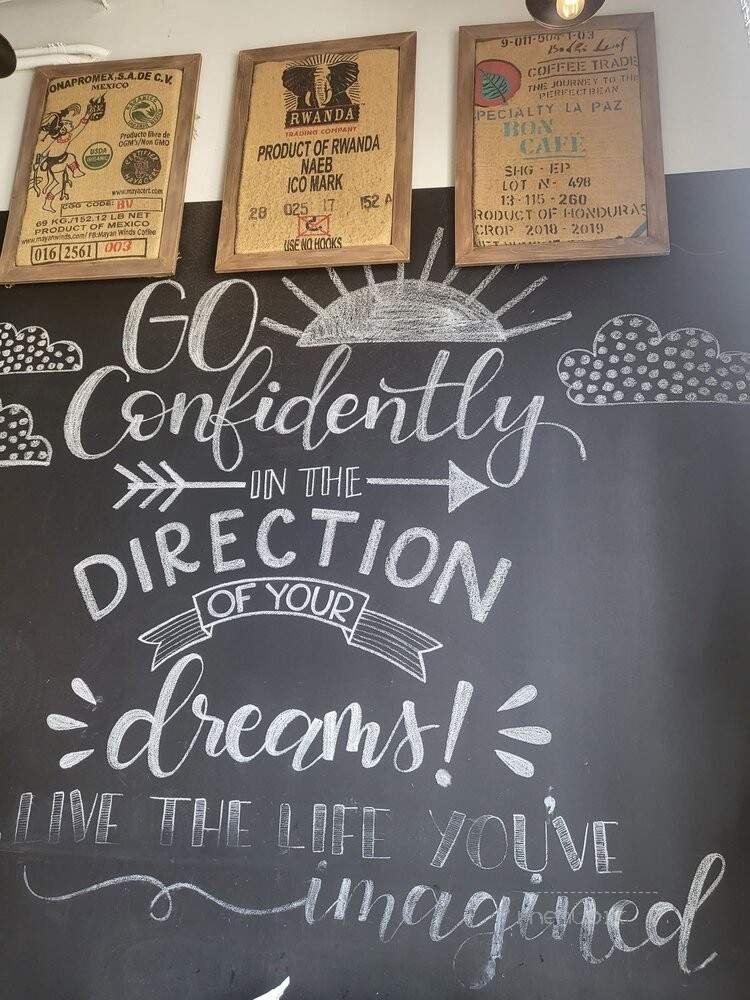 ONAPROMEX, S.A. DE C.V.
MEXICO
Producto libre de
OGM's/Non GMO
USDA
ORGANIC
www.mayacert.com
CGG CODE: BV
69 KG./152.12 LB NET
PRODUCT OF MEXICO
www.mayanwinds.com/ FB:Mayan Winds Coffee
016 2561 003
RWANDA
TRADING COMPANY
PRODUCT OF RWANDA
NAEB
ICO MARK
28 025 17 152 A
USE NO HOOKS
9-011-504 1-03
Bodhi Leaf
COFFEE TRADE
THE JOURNEY TO THE
PERFECT BEAN
SPECIALTY LA PAZ
BON
CAFÉ
SHG - EP
LOT N- 498
13-115-260
PRODUCT OF HONDURAS
CROP 2018-2019
GO
Confidently
IN THE
DIRECTION
OF YOUR
dreams!
LIVE THE LIFE YOU'VE
imagined